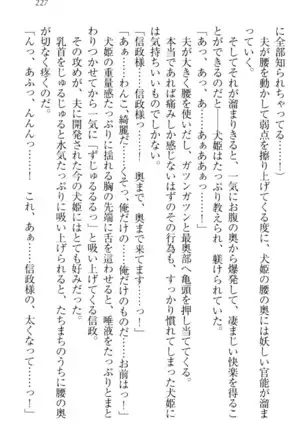 227
に全部知られちゃってる……!)
　夫が腰を動かして弱点を擦り上げてくる度に、犬姫の腰の奥には妖しい官能が溜ま
っていく。
　そしてそれが溜まりきると、一気にお腹の奥から爆発して、凄まじい快楽を得るこ
とができるのだと――犬姫はたっぷり教えられ、躾けられていた。
「あぁっ、あっ……あ――ああああっ……！」
　夫が大きく腰を使いだし、ガツンガツンと最奥部へ亀頭を押し当ててくる。
　本当であれば痛みしか感じないはずのその行為も、すっかり慣れてしまった犬姫に
は気持ちいいものでしかない。
「信政様っ……信政様ぁっ……！　奥まで、奥まで来てますっ……！」
「あぁ……わんこ、綺麗だ……くそっ、俺だけの……俺だけのものだ……お前はっ！」
　犬姫の重量感たっぷりに揺れる胸の先端に舌を這わせると、唾液をたっぷりとまと
わりつかせてから一気に「ずじゅるるるっ」と吸い上げてくる信政。
　その攻めが、夫に開発された今の犬姫にはとても好みだった。
　乳首をじゅるじゅると水気たっぷりに吸い上げられると、たちまちのうちに腰の奥
が切なく疼くのだ。
「んっ、あふっ……、んんんっ……！　これ、あぁ……信政様の、太くなって……っ！